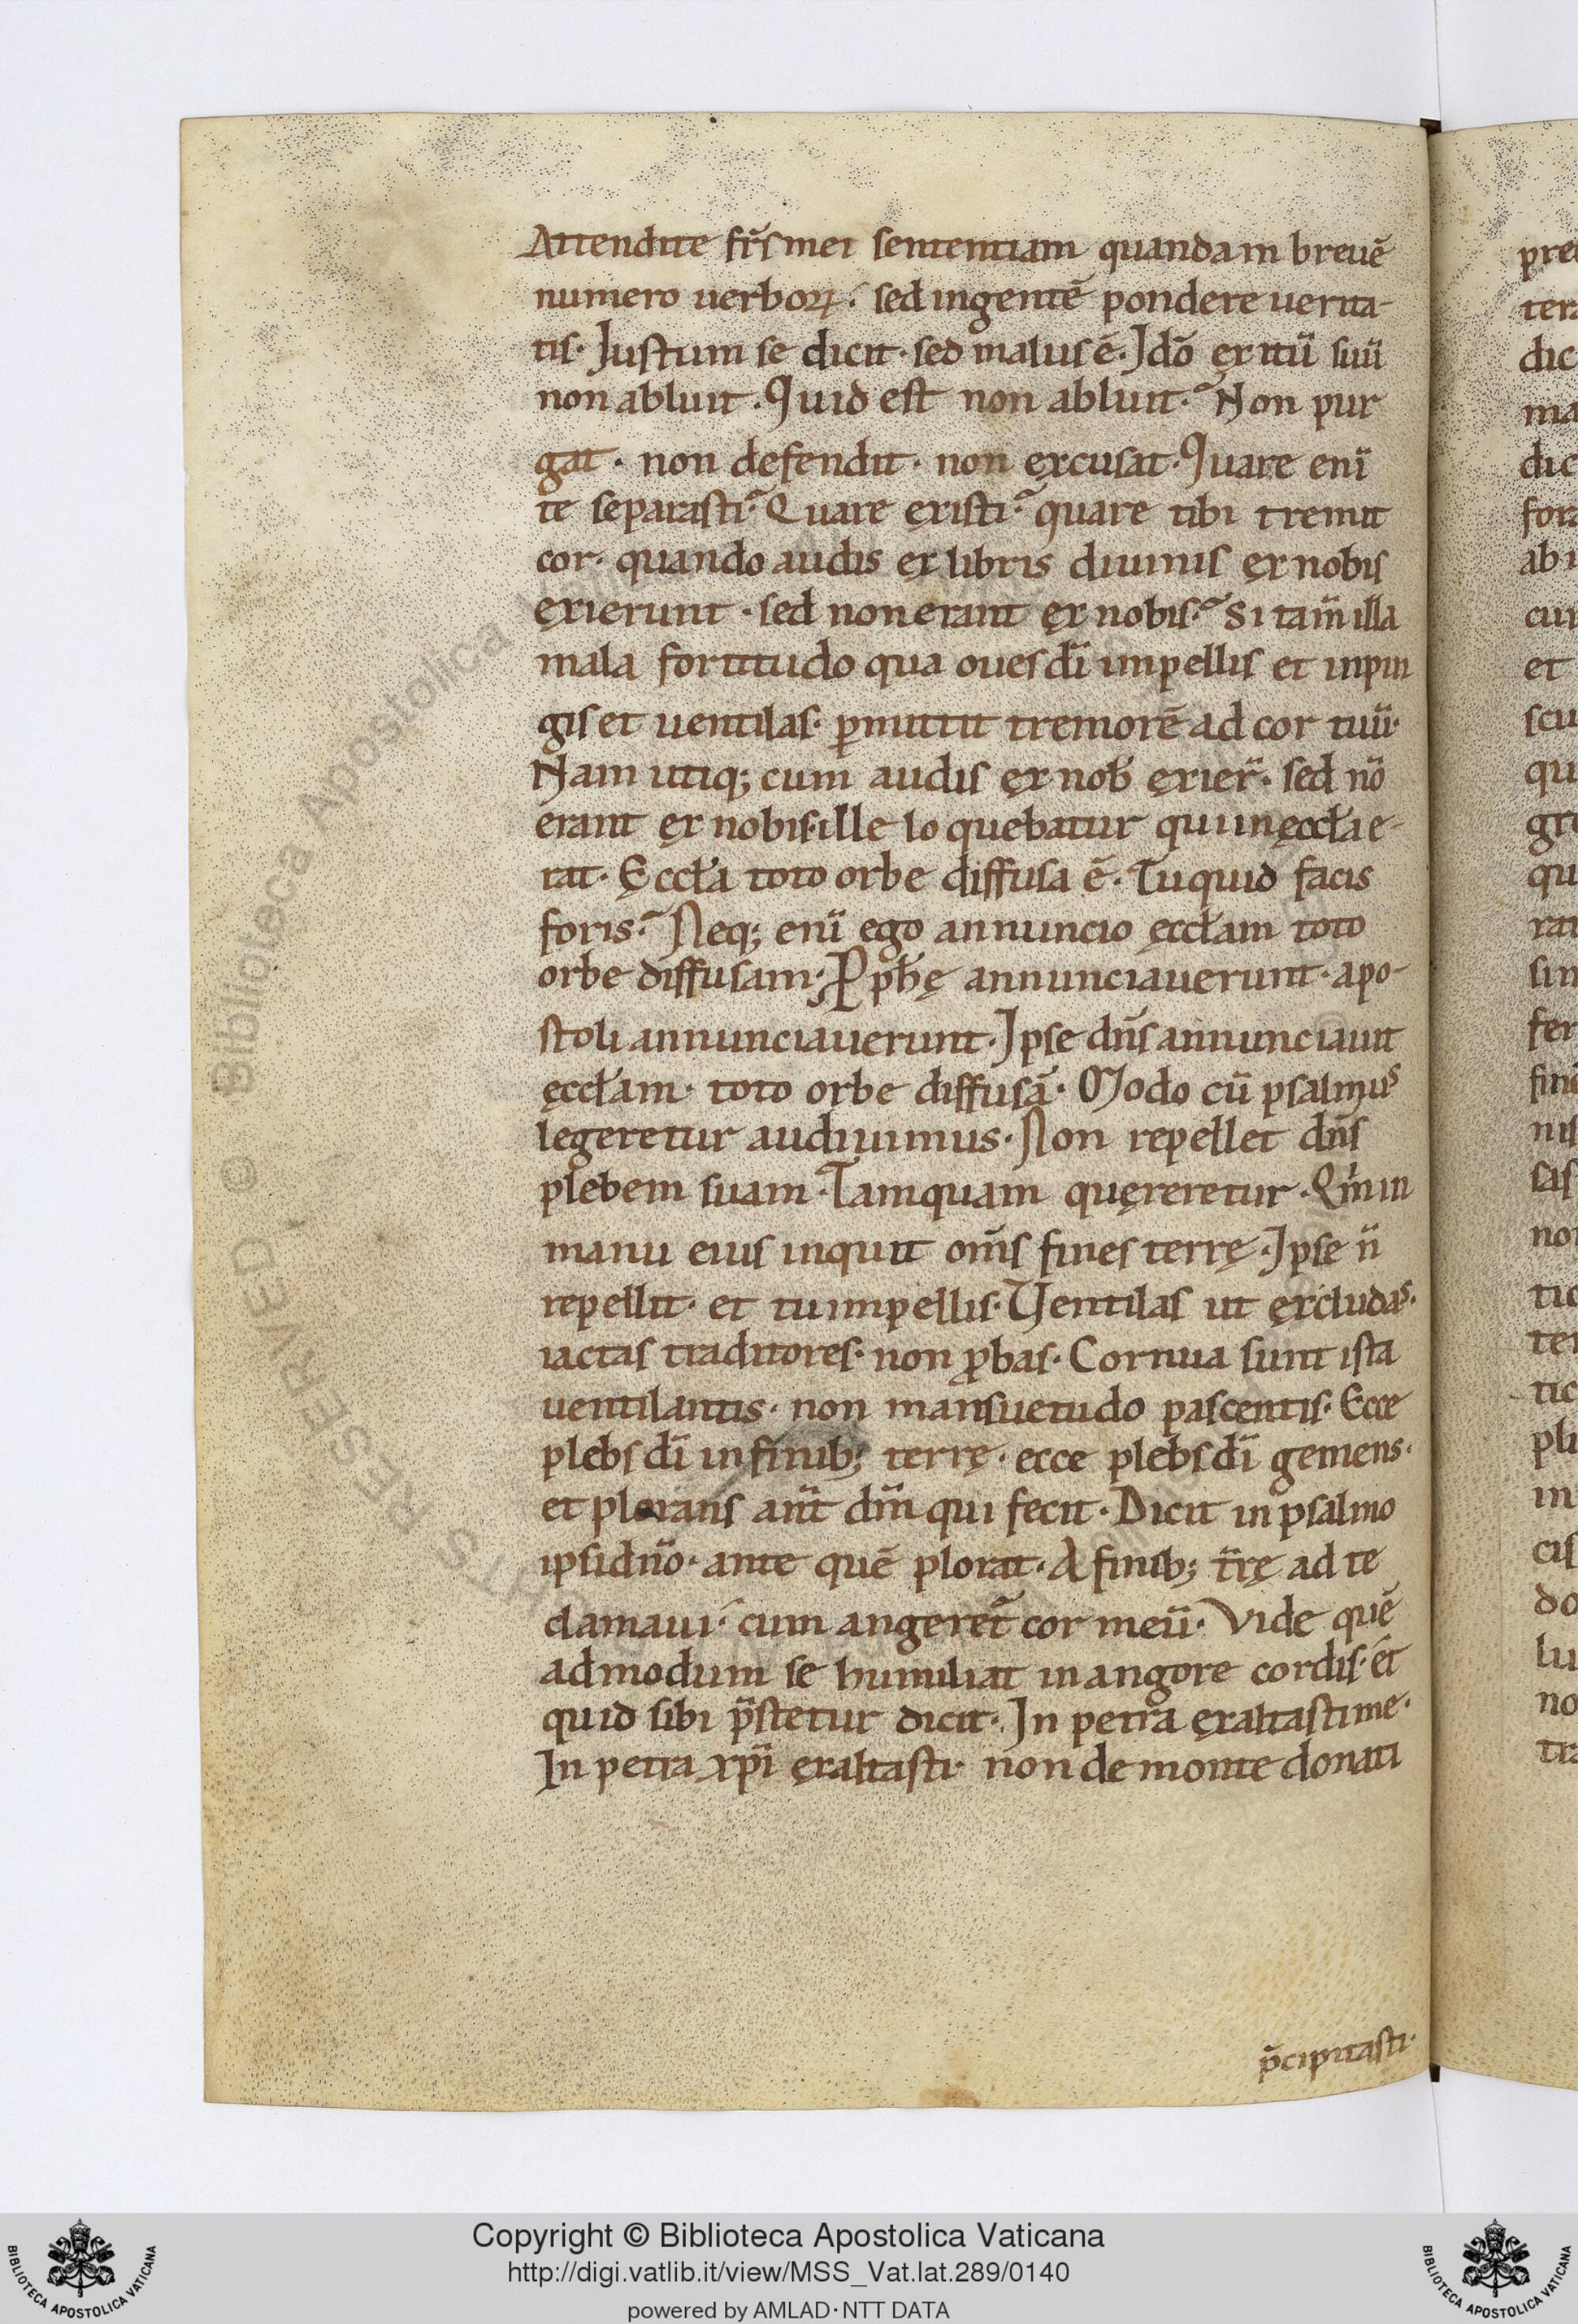 Attendite fr̄s mei sententiam quandam breuē
numero uerboꝝ. sed ingentē pondere uerita-
tis. Justum se dicit. sed malus ē. Jdō ęxitū suū
non abluit. Quid est non abluit? Non pur
gat. non defendit. non ęxcusat. Quare enī
te separasti? Quare ęxisti? quare tibi tremit
cor. quando audis ęx libris diuinis ęx nobis
ęxierunt. sed non erant ęx nobis? Si tam̄ illa
mala fortitudo qua oues dī impellis et inpin
gis et uentilas. ꝑmittit tremorē ad cor tuū.
Nam utiq; cum audis ęx nob̄ ęxier̄. sed nō
erant ęx nobis. ille loquebatur qui in ęccl̄a e-
rat. Ęccl̄a toto orbe diffusa ē. Tu quid facis
foris? Neq; enī ego annuncio ęccl̄am toto
orbe diffusam. Ꝓph̄ę annunciauerunt. apo-
stoli annunciauerunt. Jpse dn̄s annunciauit
ęccl̄am. toto orbe diffusā. Modo cū psalmus
legeretur audiuimus. Non repellet dn̄s
plebem suam. Tamquam quęreretur. Qm̄ in
manu eius inquit om̄s fines terrę. Jpse n̄
repellit. et tu impellis. Uentilas ut ęxcludas.
iactas traditores. non ꝓbas. Cornua sunt ista
uentilantis. non mansuetudo pascentis. Ecce
plebs dī in finib; terrę. ecce plebs dī gemens.
et plorans an̄t dn̄m qui fecit. Dicit in psalmo
ipsi dn̄o. ante quē plorat. A finib; t̄rę ad te
clamaui. cum angeret̄ cor meū. Vide quē
admodum se humiliat in angore cordis. et
quid sibi p̄stetur dicit. Jn petra ęxaltasti me.
Jn petra xp̄i ęxaltasti. non de monte donati
p̄cipitasti.
pre
tera
dic
ma
dic
fora
ab i
cun
et
scu
qu
gre
qu
rat
sin
fer
fine
nis
sas
non
tio
ter
tic
pli
in
cis
do
lu
no
tra
© Biblioteca Apostolica
RESERVED
Copyright © Biblioteca Apostolica Vaticana
http://digi.vatlib.it/view/MSS_Vat.lat.289/0140
powered by AMLAD·NTT DATA
BIBLIOTECA APOSTOLICA VATICANA
BIBLIOTECA APOSTOLICA VATICANA